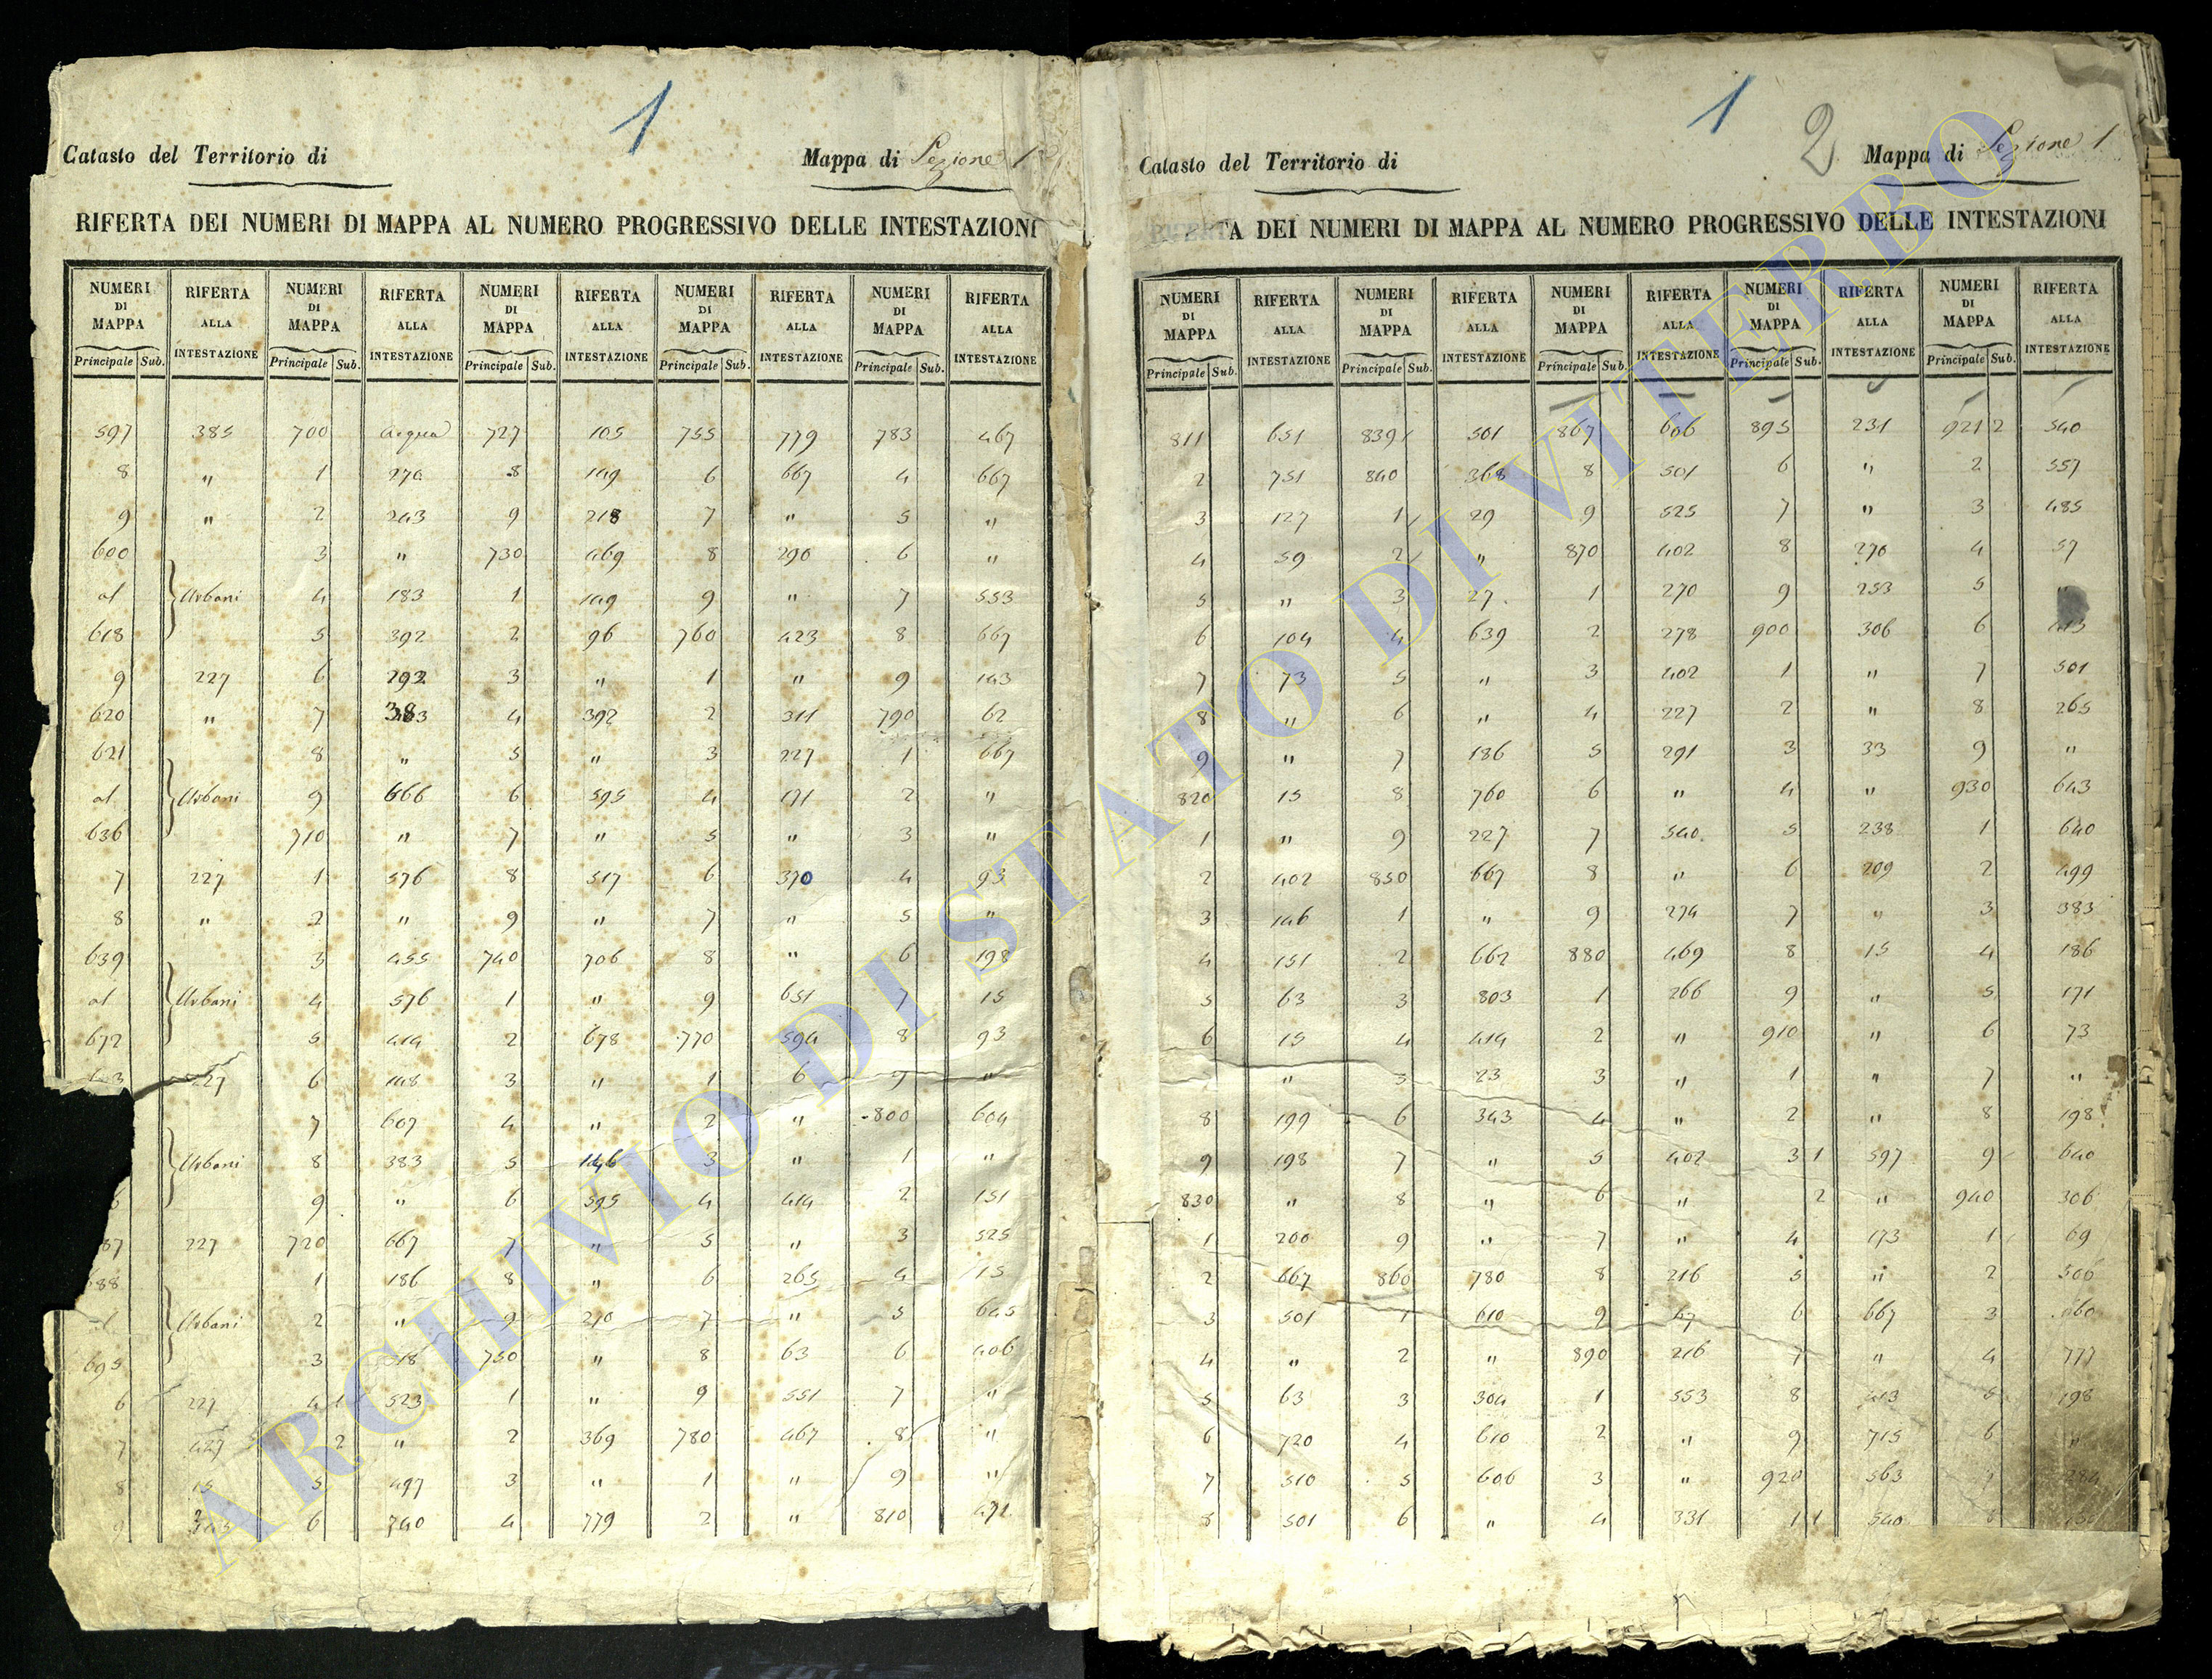 1
Catasto del Territorio di
Mappa di Sezione 1
RIFERTA DEI NUMERI DI MAPPA AL NUMERO PROGRESSIVO DELLE INTESTAZIONI
NUMERI DI MAPPA RIFERTA ALLA INTESTAZIONE NUMERI DI MAPPA RIFERTA ALLA INTESTAZIONE NUMERI DI MAPPA RIFERTA ALLA INTESTAZIONE NUMERI DI MAPPA RIFERTA ALLA INTESTAZIONE NUMERI DI MAPPA RIFERTA ALLA INTESTAZIONE
Principale Sub. Principale Sub. Principale Sub. Principale Sub. Principale Sub.
597 385 700 acqua 727 105 755 779 783 467
8 " 1 270 8 149 6 667 4 667
9 " 2 243 9 218 7 " 5 "
600 3 " 730 469 8 290 6 "
al Urbani 4 183 1 149 9 " 7 553
618 5 392 2 96 760 423 8 667
9 227 6 292 3 " 1 " 9 143
620 " 7 4 392 2 311 790 62
621 8 " 5 " 3 227 1 667
al Urbani 9 666 6 595 4 171 2 "
636 710 " 7 " 5 " 3 "
7 227 1 576 8 517 6 370 4 93
8 " 2 " 9 " 7 " 5 "
639 3 455 740 706 8 " 6 198
al Urbani 4 576 1 " 9 651 7 15
672 5 414 2 678 770 594 8 93
227 6 148 3 " 1 6 9 "
7 607 4 " 2 " 800 604
Urbani 8 383 5 146 3 " 1 "
6 9 " 6 595 4 414 2 151
87 227 720 667 7 " 5 " 3 525
88 1 186 8 " 6 265 4 15
al Urbani 2 " 9 270 7 " 5 645
695 3 318 750 " 8 63 6 406
6 227 4 1 523 1 " 9 551 7 "
7 427 2 " 2 369 780 467 8 "
8 15 5 497 3 " 1 " 9 "
9 6 740 4 779 2 " 810 472
1
2
Catasto del Territorio di
Mappa di Sezione 1
RIFERTA DEI NUMERI DI MAPPA AL NUMERO PROGRESSIVO DELLE INTESTAZIONI
NUMERI DI MAPPA RIFERTA ALLA INTESTAZIONE NUMERI DI MAPPA RIFERTA ALLA INTESTAZIONE NUMERI DI MAPPA RIFERTA ALLA INTESTAZIONE NUMERI DI MAPPA RIFERTA ALLA INTESTAZIONE NUMERI DI MAPPA RIFERTA ALLA INTESTAZIONE
Principale Sub. Principale Sub. Principale Sub. Principale Sub. Principale Sub.
811 651 839 501 867 606 895 231 921 2 540
2 751 840 368 8 501 6 " 2 557
3 127 1 29 9 525 7 " 3 485
4 59 2 " 870 402 8 270 4 57
5 " 3 27 1 270 9 253 5
6 104 4 639 2 278 900 306 6 413
7 73 5 " 3 402 1 " 7 501
8 " 6 " 4 227 2 " 8 265
9 " 7 186 5 291 3 33 9 "
820 15 8 760 6 " 4 " 930 643
1 " 9 227 7 540 5 238 1 640
2 402 850 667 8 " 6 209 2 499
3 146 1 " 9 274 7 " 3 383
4 151 2 662 880 469 8 15 4 186
5 63 3 803 1 266 9 " 5 171
6 15 4 414 2 " 910 " 6 73
" 5 23 3 " 1 " 7 "
8 199 6 343 4 " 2 " 8 198
9 198 7 " 5 402 3 1 597 9 640
830 " 8 " 6 " 2 " 940 306
1 200 9 " 7 " 4 173 1 69
2 667 860 780 8 216 5 " 2 306
3 501 1 610 9 47 6 667 3
4 " 2 " 890 216 7 " 4 777
5 63 3 304 1 553 8 413 5 198
6 720 4 610 2 " 9 715 6 "
7 510 5 606 3 " 920 563 7
8 501 6 " 4 331 1 1 540 8
ARCHIVIO DI STATO DI VITERBO